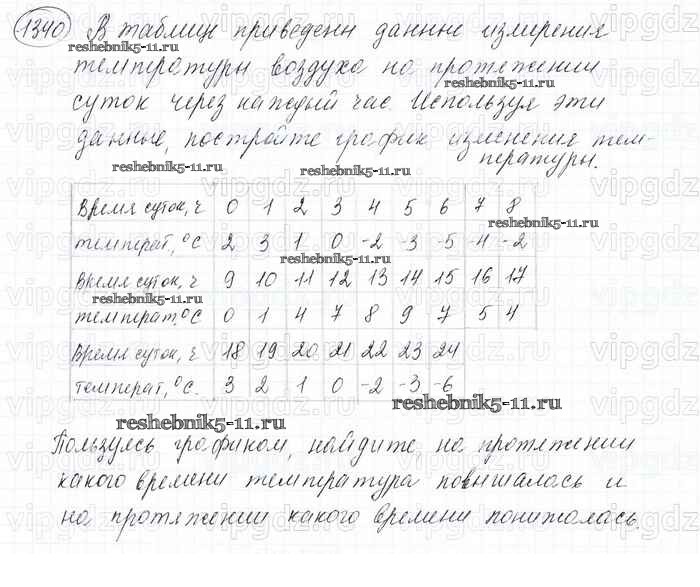 1340 В таблице приведены данные измерения
температуры воздуха на протяжении
суток через каждый час. Используя эти
данные, постройте график изменения тем-
пературы.
Время суток, ч 0 1 2 3 4 5 6 7 8
температ, °С 2 3 1 0 -2 -3 -5 -4 -2
Время суток, ч 9 10 11 12 13 14 15 16 17
температ, °С 0 1 4 7 8 9 7 5 4
Время суток, ч 18 19 20 21 22 23 24
температ, °С. 3 2 1 0 -2 -3 -6
Пользуясь графиком, найдите на протяжении
какого времени температура повышалась и
на протяжении какого времени понижалась.
reshebnik5-11.ru
reshebnik5-11.ru
reshebnik5-11.ru
reshebnik5-11.ru
reshebnik5-11.ru
reshebnik5-11.ru
reshebnik5-11.ru
reshebnik5-11.ru
reshebnik5-11.ru